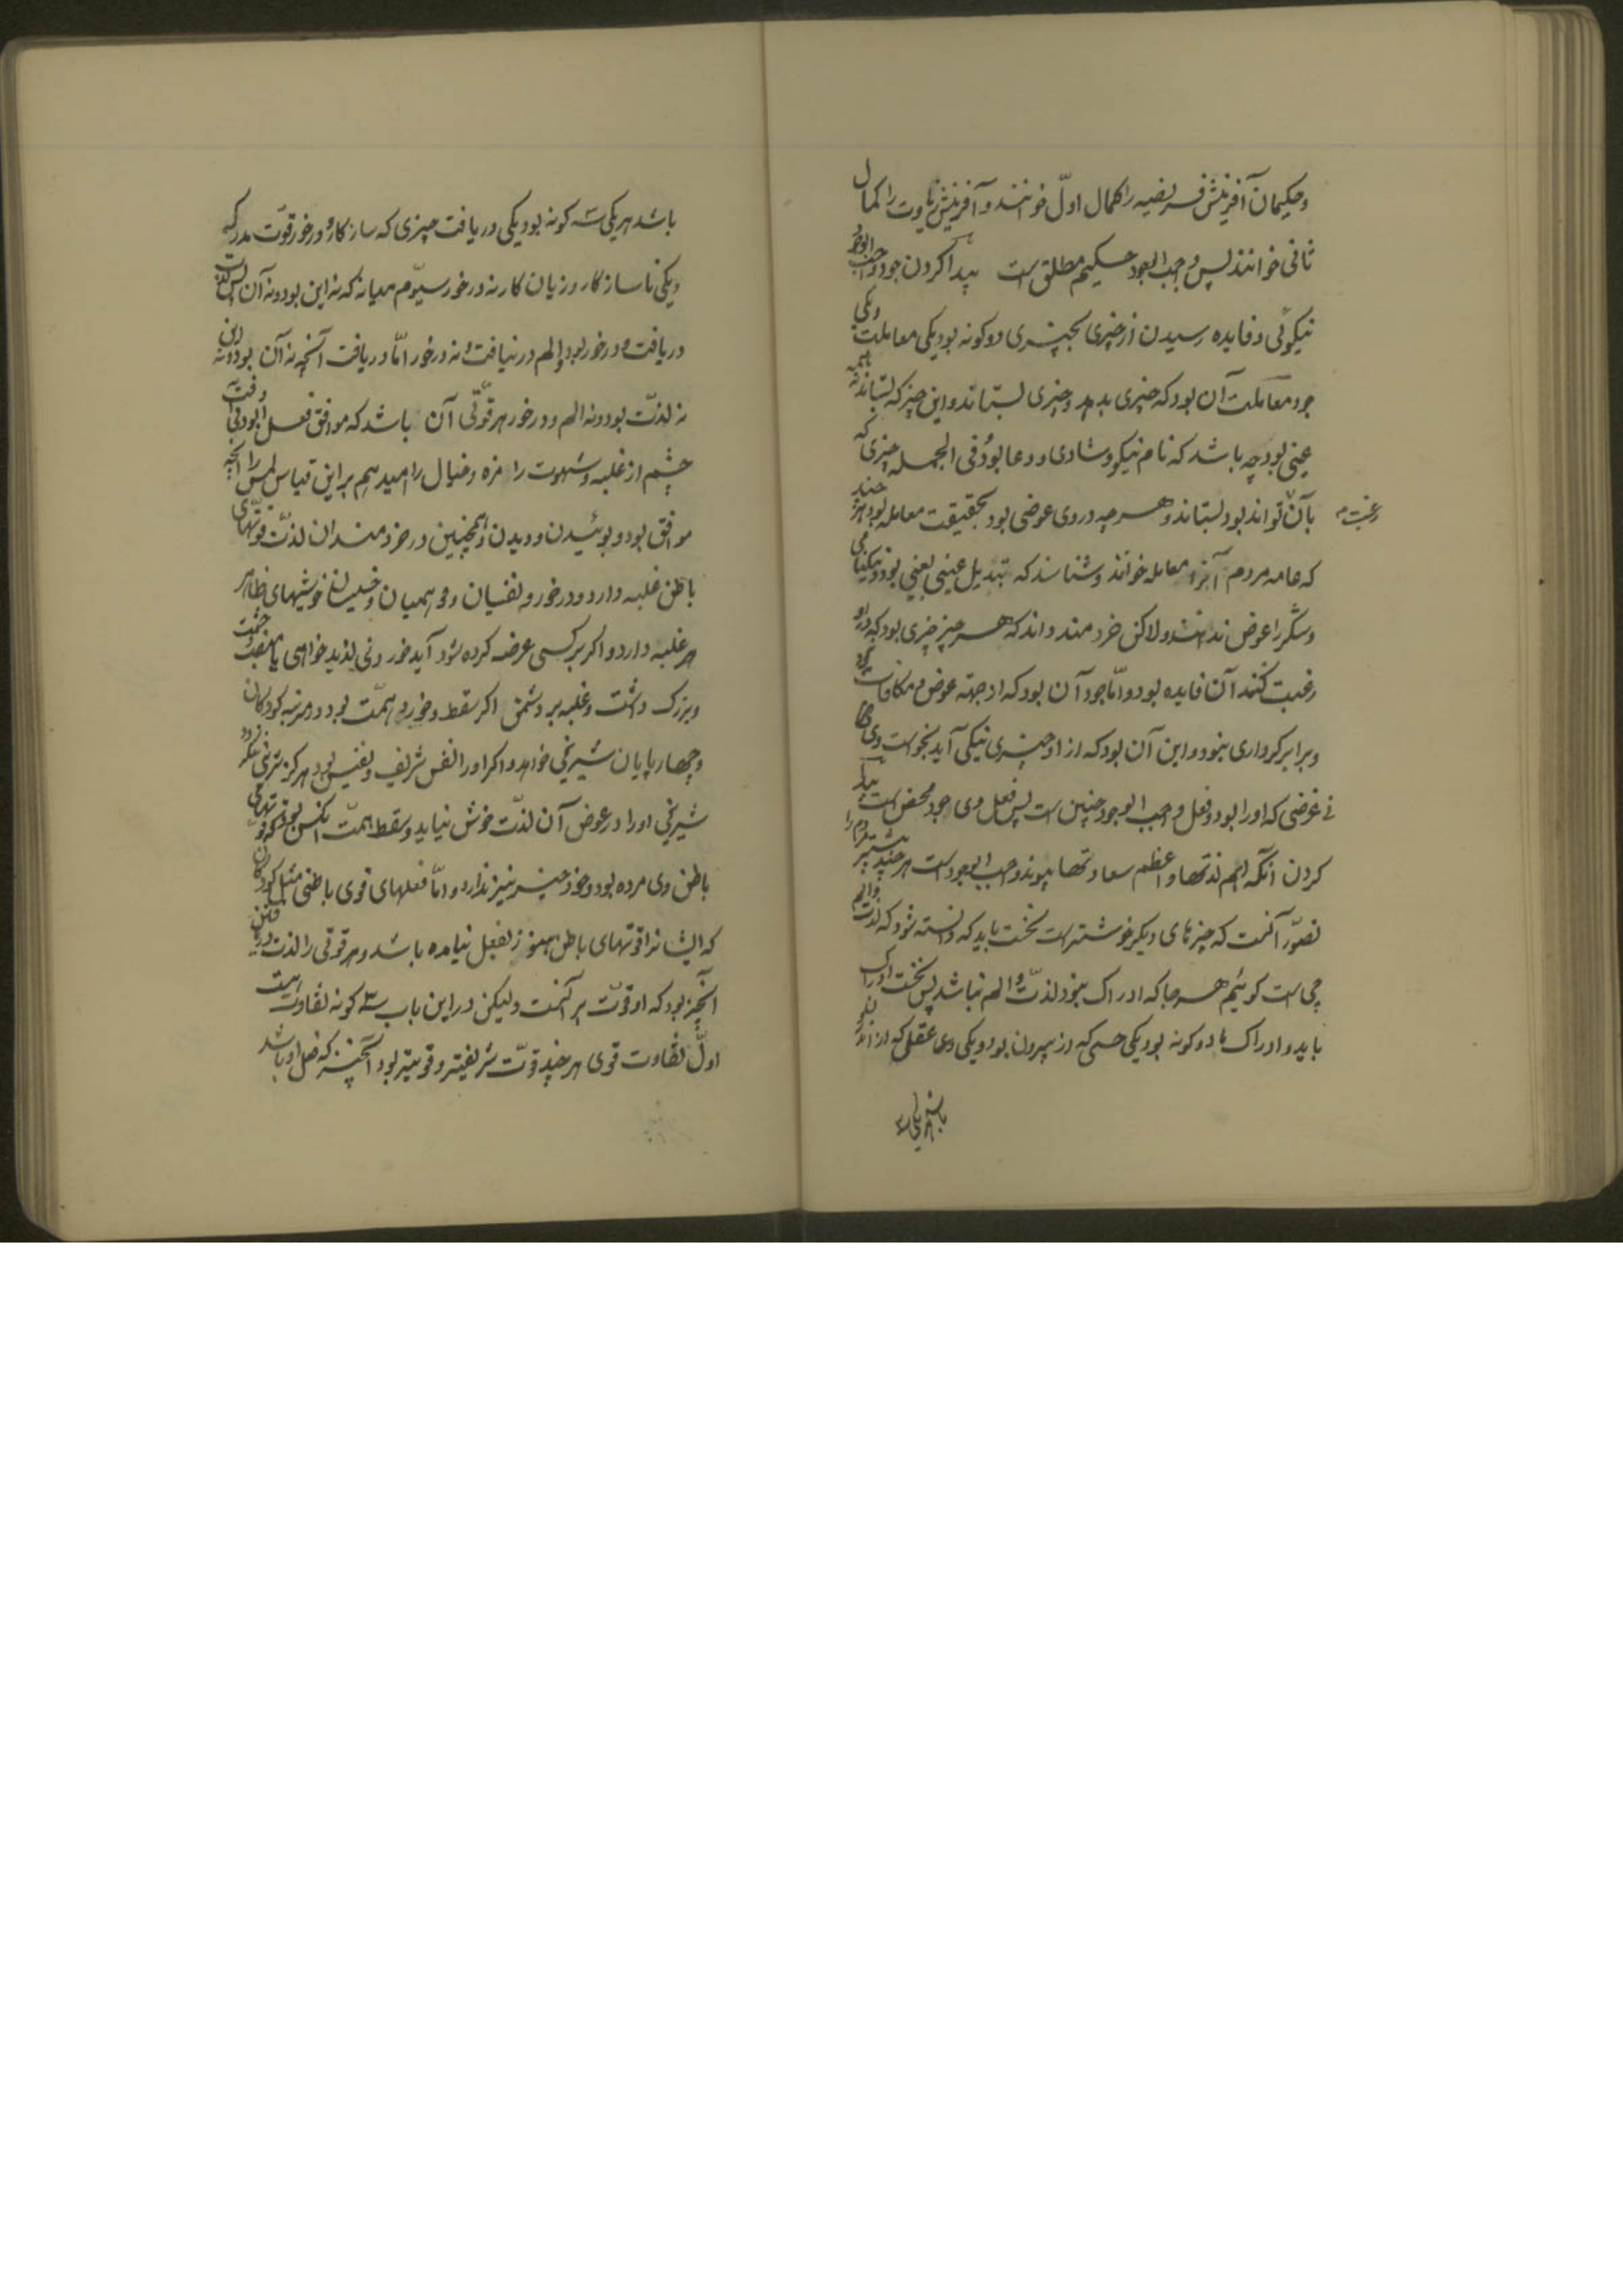 و حکیمان آفرینش فریضیه را کمال اول خوانند و آفرینش زیادت را کمال
ثانی خوانند پس واجب الوجود حکیم مطلق است پیدا کردن جود واجب الوجود
نیکوئی و فایده رسیدن از چیزی بچیزی دو کونه بود یکی معاملت و یکی
جود معاملت آن بود که چیزی بدهد و چیزی بستاند و این چیز که بستاند نه همیشه
عینی بود چه باشد که نام نیکو و شادی و دعا بود فی الجمله چیزی که
بآن تواند بود بستاند و هر چه در وی عوضی بود بحقیقت معامله بود هر چند
رغبت
که عامه مردم آنرا معامله خوانند و شناسند که تبدیل عینی بعینی بود و نیکنامی
و شکر را عوض ندانند و لاکن خردمند داند که هر چیز چیزی بود که در او
رغبت کنند آن فایده بود و اما جود آن بود که از جهته عوض و مکافات نبود
و برابر کرداری نبود و این آن بود که از او چیزی نیکی آید بخواست وی
بی غرضی که او را بود و فعل واجب الوجود چنین است پس فعل وی جود محض است پیدا
کردن آنکه اهم لذتها و اعظم سعادتها پیوند واجب الوجود است هر چند بیشتر مردم را
تصور آنست که چیزهای دیکر خوشتر است نخست باید که دانسته شود که لذت و الم
چی است کوئیم هر جا که ادراک نبود لذت و الم نباشد پس نخست ادراک
باید و ادراک ما دو کونه بود یکی حسی که از بیرون بود و یکی وهمی عقلی که از اندرون
باشد هر یکی سه کونه بود یکی دریافت چیزی که سازکار و درخور قوت مدرکه
و یکی ناسازکار و زیان کار نه درخور سیوم میانه که نه این بود و نه آن پس لذت
دریافت درخور بود و الم دریافت نه درخور اما دریافت آنچه نه آن بود و نه این
نه لذت بود و نه الم و درخور هر قوتی آن باشد که موافق فعل او بود بی آفت
خشم را غلبه و شهوت را مزه و خیال را امید هم بر این قیاس لمس را آنچه
موافق بود و بوئیدن و دیدن و همچنین در خردمندان لذت قوتهای
باطن غلبه دارد و در خورد نفسیان و دون همتیان و خسیسان خوشیهای ظاهر
هر غلبه دارد و اکر بر کسی عرضه کرده شود آید خوردنی لذیذ خواهی یا منصب و حشمت
و بزرک داشت و غلبه بر دشمن اکر سقط و خورد همت بود و در مرتبه کودکان
و چهارپایان شیرینی خواهد و اکر او را نفس شریف و نفیس بود هرکز بشیرینی ننکرد
شیرینی او را در عوض آن لذت خوش نیاید و سقط همت آنکس بود که قوتهای
باطن وی مرده بود و خود خبر نیز ندارد و اما فعلهای قوی باطنی مثل کودکان
که ایشانرا قوتهای باطن هنوز بفعل نیامده باشد و هر قوتی را لذت در یافتن
آنچیز بود که او قوت بر آنست ولیکن در این باب سه کونه تفاوت هست
اول تفاوت قوی هر چند قوت شریفتر و قویتر بود آنچیز که فعل او باشد